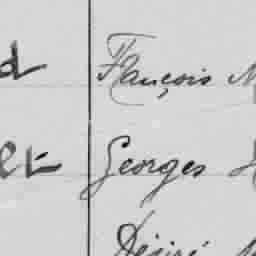 d François M
et Georges
Désiré